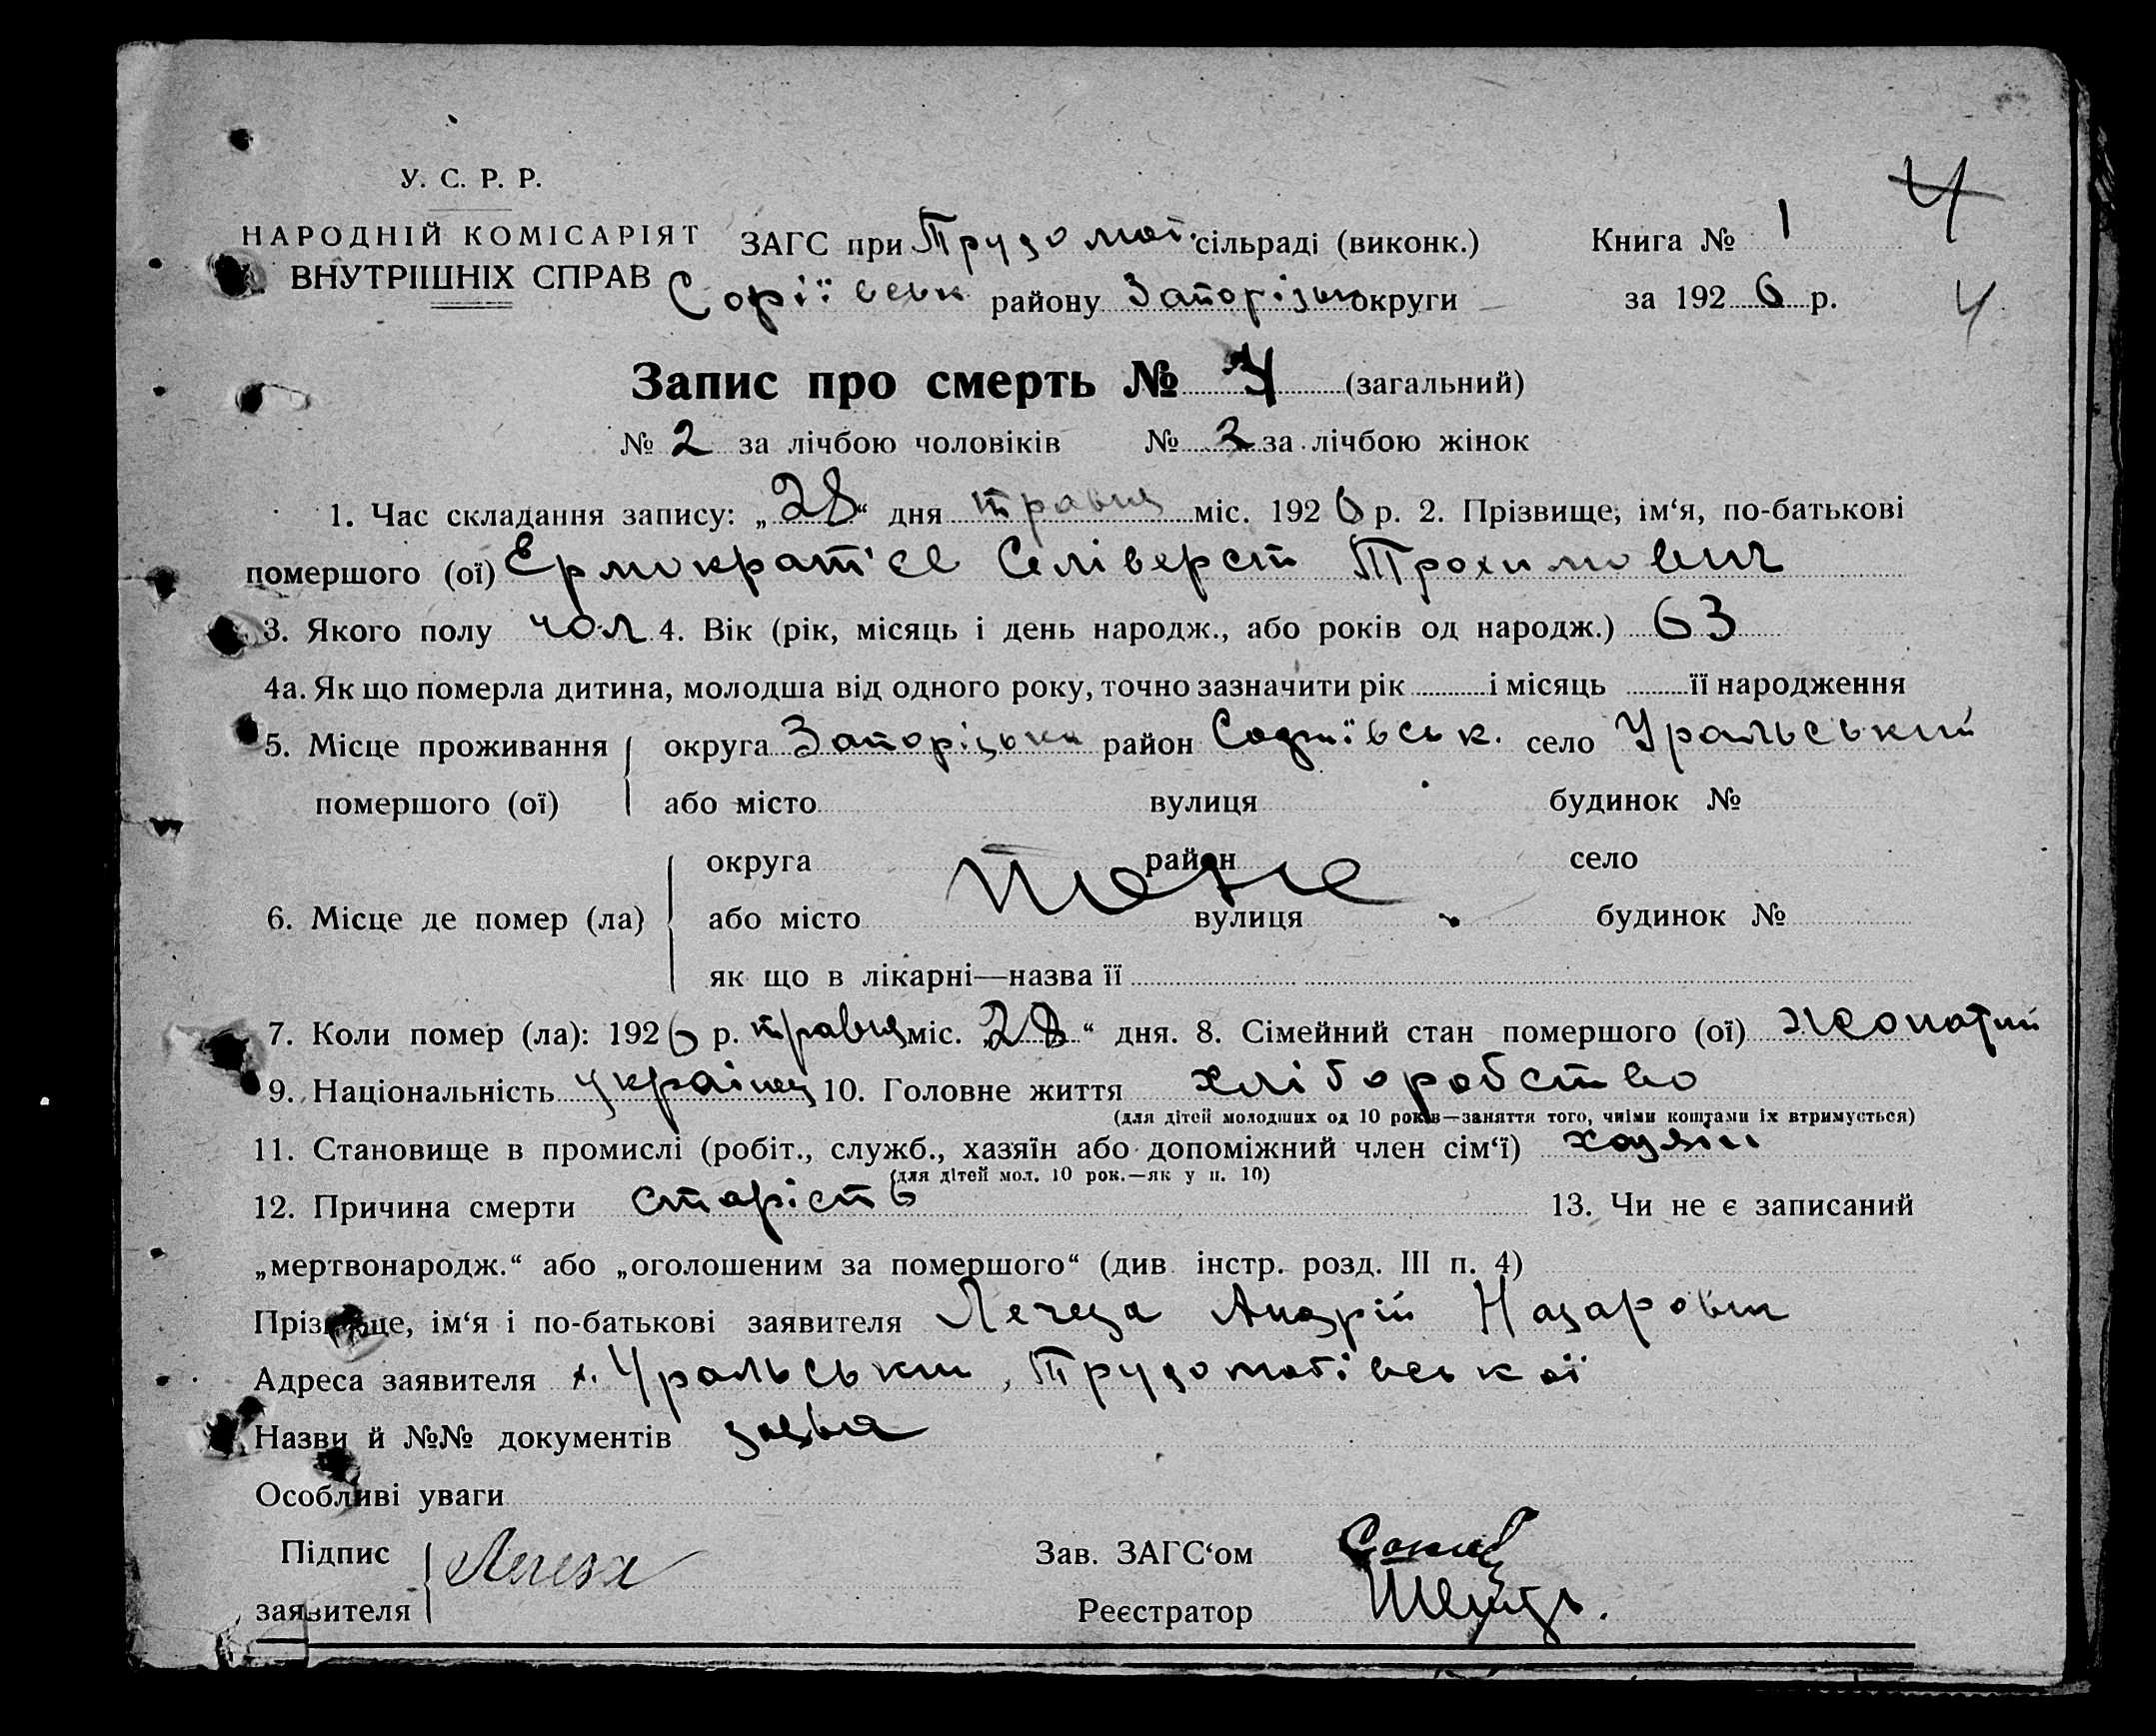 У. С. Р. Р.
НАРОДНІЙ КОМІСАРІЯТ
ВНУТРІШНІХ СПРАВ
ЗАГС при Трудомат. сільраді (виконк.)
району Запорізьк округи
Книга № 1
за 1926 р.
4
4
Запис про смерть № 4 (загальний)
№ 2 за лічбою чоловіків № 2 за лічбою жінок
1. Час складання запису: „28“ дня травня міс. 1926 р. 2. Прізвище, ім‘я, по-батькові
помершого (ої) Ермократ'єв Селіверст Трохимович
3. Якого полу чол 4. Вік (рік, місяць і день народж., або років од народж.) 63
4а. Як що померла дитина, молодша від одного року, точно зазначити рік і місяць її народження
5. Місце проживання округа Запорізька район село Уральський
помершого (ої) або місто вулиця будинок №
округа район село
6. Місце де помер (ла) або місто теже вулиця будинок №
як що в лікарні—назва її
7. Коли помер (ла): 1926 р. травня міс. „28“ дня. 8. Сімейний стан помершого (ої) жонатий
9. Національність українец 10. Головне життя хліборобство
(для дітей молодших од 10 років—заняття того, чиїми коштами їх втримується)
11. Становище в промислі (робіт., служб., хазяїн або допоміжний член сім‘ї) хазяїн
(для дітей мол. 10 рок.—як у п. 10)
12. Причина смерти старість 13. Чи не є записаний
„мертвонародж.“ або „оголошеним за помершого“ (див. інстр. розд. III п. 4)
Прізвище, ім‘я і по-батькові заявителя Андрій Назарович
Адреса заявителя х. Уральський, Трудоматівської
Назви й №№ документів заява
Особливі уваги
Підпис
заявителя
Зав. ЗАГС‘ом
Реєстратор